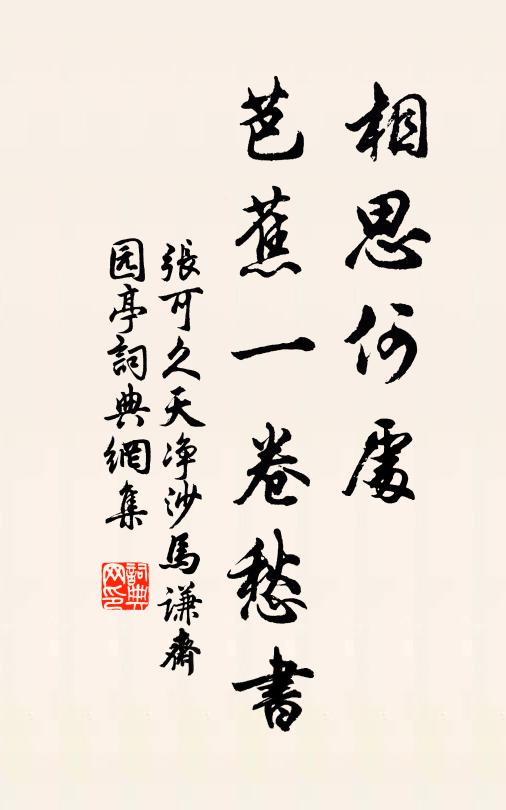 相思何處
芭蕉一卷愁書
張可久天净沙馬谦齋
园亭詞典網集
詞典网印